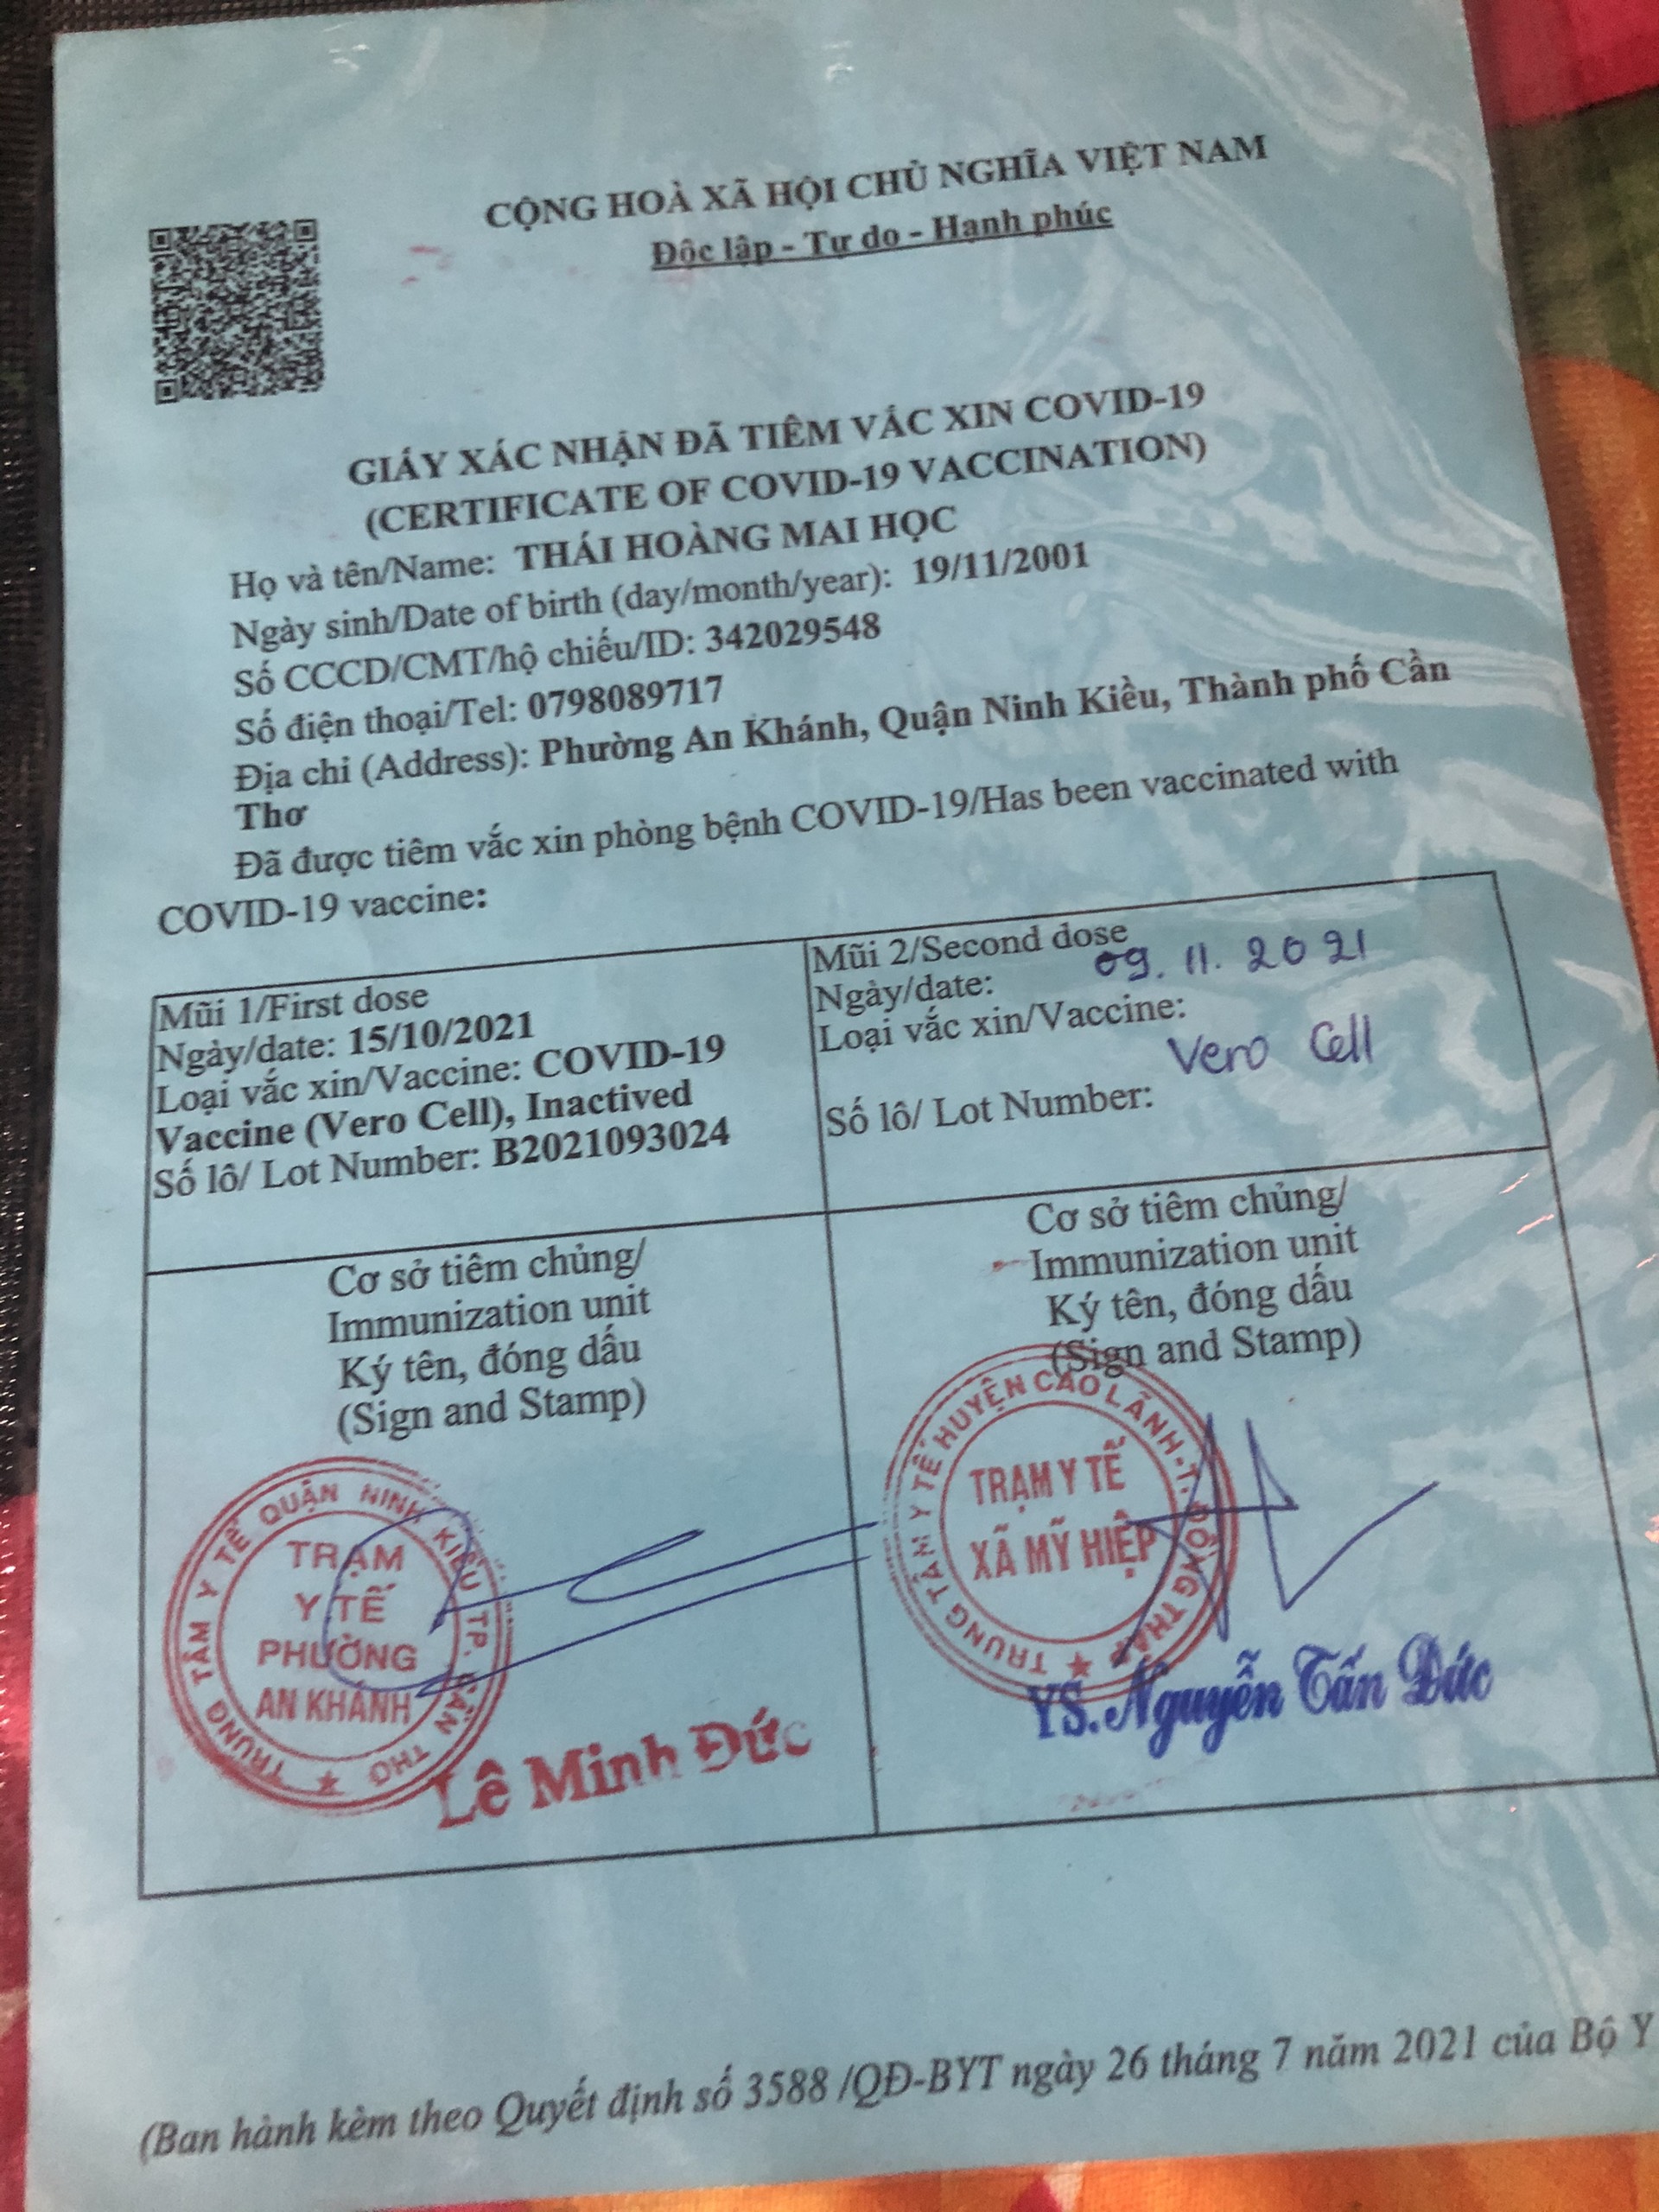 CỘNG HOÀ XÃ HỘI CHỦ NGHĨA VIỆT NAM
Độc lập - Tự do - Hạnh phúc
GIẤY XÁC NHẬN ĐÃ TIÊM VẮC XIN COVID-19
(CERTIFICATE OF COVID-19 VACCINATION)
Họ và tên/Name: THÁI HOÀNG MAI HỌC
Ngày sinh/Date of birth (day/month/year): 19/11/2001
Số CCCD/CMT/hộ chiếu/ID: 342029548
Số điện thoại/Tel: 0798089717
Địa chỉ (Address): Phường An Khánh, Quận Ninh Kiều, Thành phố Cần
Thơ
Đã được tiêm vắc xin phòng bệnh COVID-19/Has been vaccinated with
COVID-19 vaccine:
Mũi 1/First dose
Ngày/date: 15/10/2021
Loại vắc xin/Vaccine: COVID-19
Vaccine (Vero Cell), Inactived
Số lô/ Lot Number: B2021093024
Mũi 2/Second dose
Ngày/date: 09.11.2021
Loại vắc xin/Vaccine:
Vero Cell
Số lô/ Lot Number:
Cơ sở tiêm chủng/
Immunization unit
Ký tên, đóng dấu
(Sign and Stamp)
TRUNG TÂM Y TẾ QUẬN NINH KIỀU TP. CẦN THƠ
TRẠM
Y TẾ
PHƯỜNG
AN KHÁNH
Lê Minh Đức
Cơ sở tiêm chủng/
Immunization unit
Ký tên, đóng dấu
(Sign and Stamp)
TRUNG TÂM Y TẾ HUYỆN CAO LÃNH-T. ĐỒNG THÁP
TRẠM Y TẾ
XÃ MỸ HIỆP
YS. Nguyễn Tấn Đức
(Ban hành kèm theo Quyết định số 3588 /QĐ-BYT ngày 26 tháng 7 năm 2021 của Bộ Y